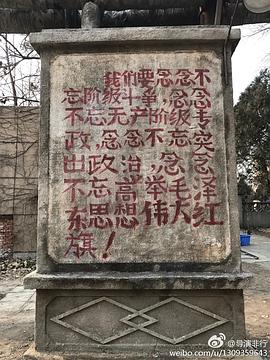 我们要念念不
忘阶级斗争,念念
不忘无产阶级专
政,念念不忘突
出政治,念念
不忘高举毛泽
东思想伟大红
旗!
@导演非行
weibo.com/u/1309359643